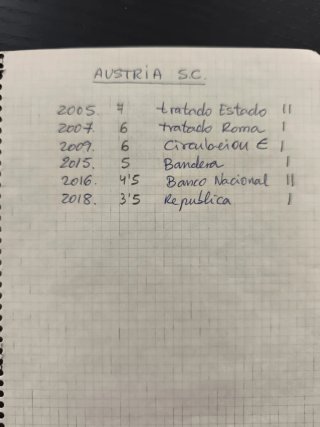 AUSTRIA S.C.
2005. 7 tratado Estado II
2007. 6 tratado Roma I
2009. 6 Circulacion € I
2015. 5 Bandera I
2016. 4'5 Banco Nacional II
2018. 3'5 Republica I